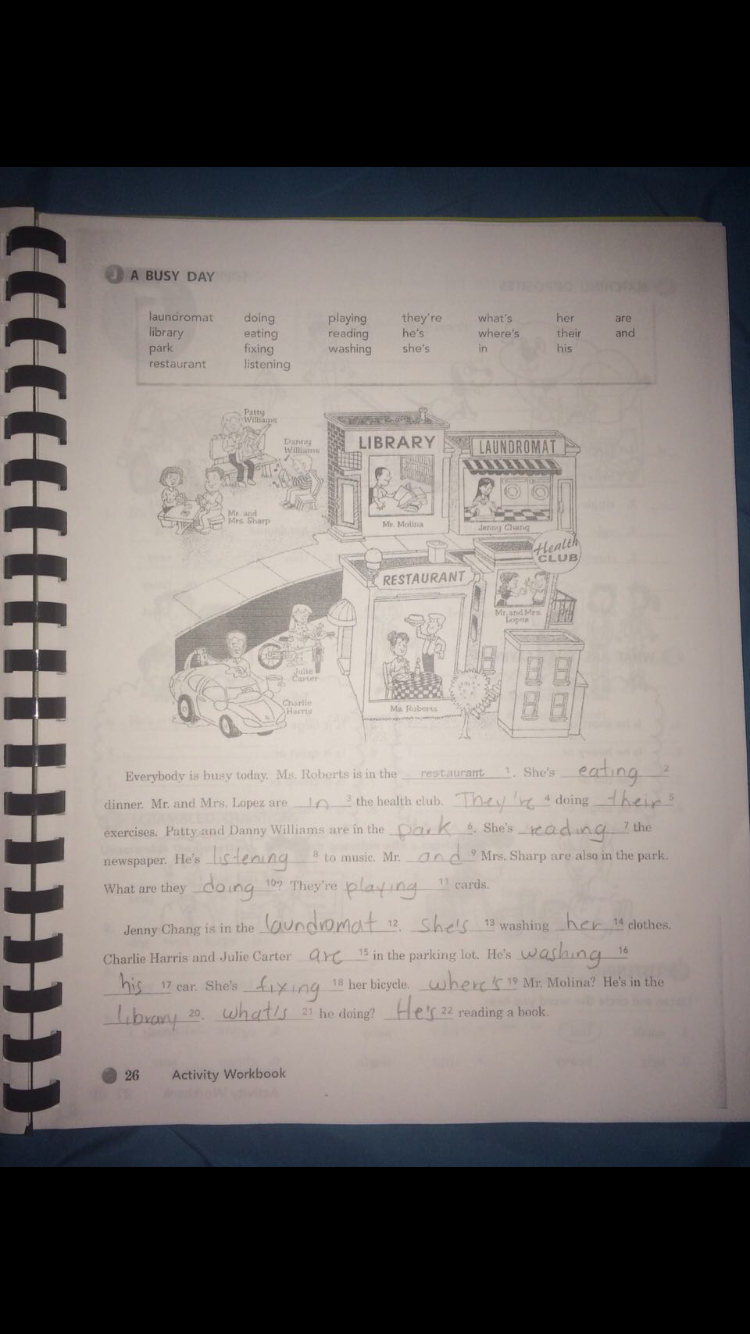 J A BUSY DAY
laundromat doing playing they're what's her are
library eating reading he's where's their and
park fixing washing she's in his
restaurant listening
Patty
Williams
Danny
Williams
Mr. and
Mrs. Sharp
LIBRARY
Mr. Molina
LAUNDROMAT
Jenny Chang
Health
CLUB
RESTAURANT
Mr. and Mrs.
Lopez
Julie
Carter
Charlie
Harris
Ms. Roberts
Everybody is busy today. Ms. Roberts is in the restaurant 1. She's eating 2
dinner. Mr. and Mrs. Lopez are in 3 the health club. They're 4 doing their 5
exercises. Patty and Danny Williams are in the park 6. She's reading 7 the
newspaper. He's listening 8 to music. Mr. and 9 Mrs. Sharp are also in the park.
What are they doing 10? They're playing 11 cards.
Jenny Chang is in the laundromat 12. she's 13 washing her 14 clothes.
Charlie Harris and Julie Carter are 15 in the parking lot. He's washing 16
his 17 car. She's fixing 18 her bicycle. where's 19 Mr. Molina? He's in the
library 20. what's 21 he doing? He's 22 reading a book.
26 Activity Workbook